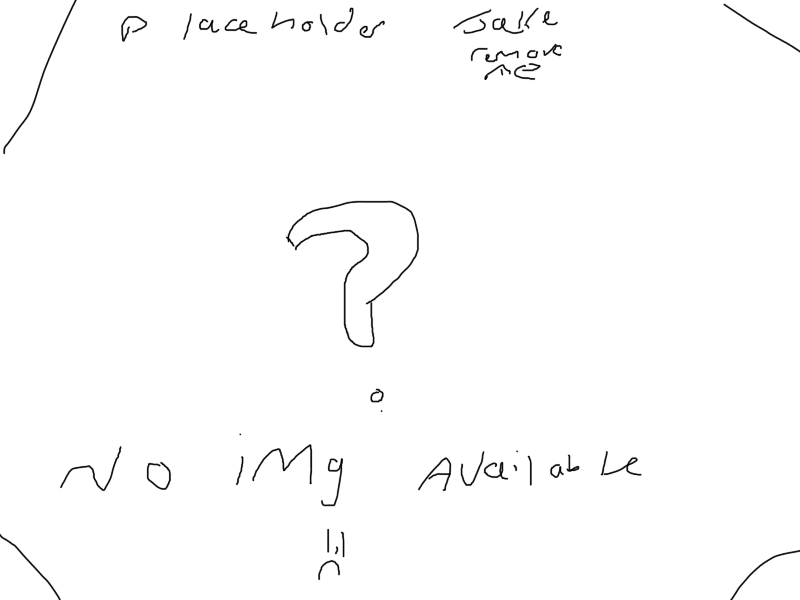 Placeholder Sake
remove
ME
No iMg Available